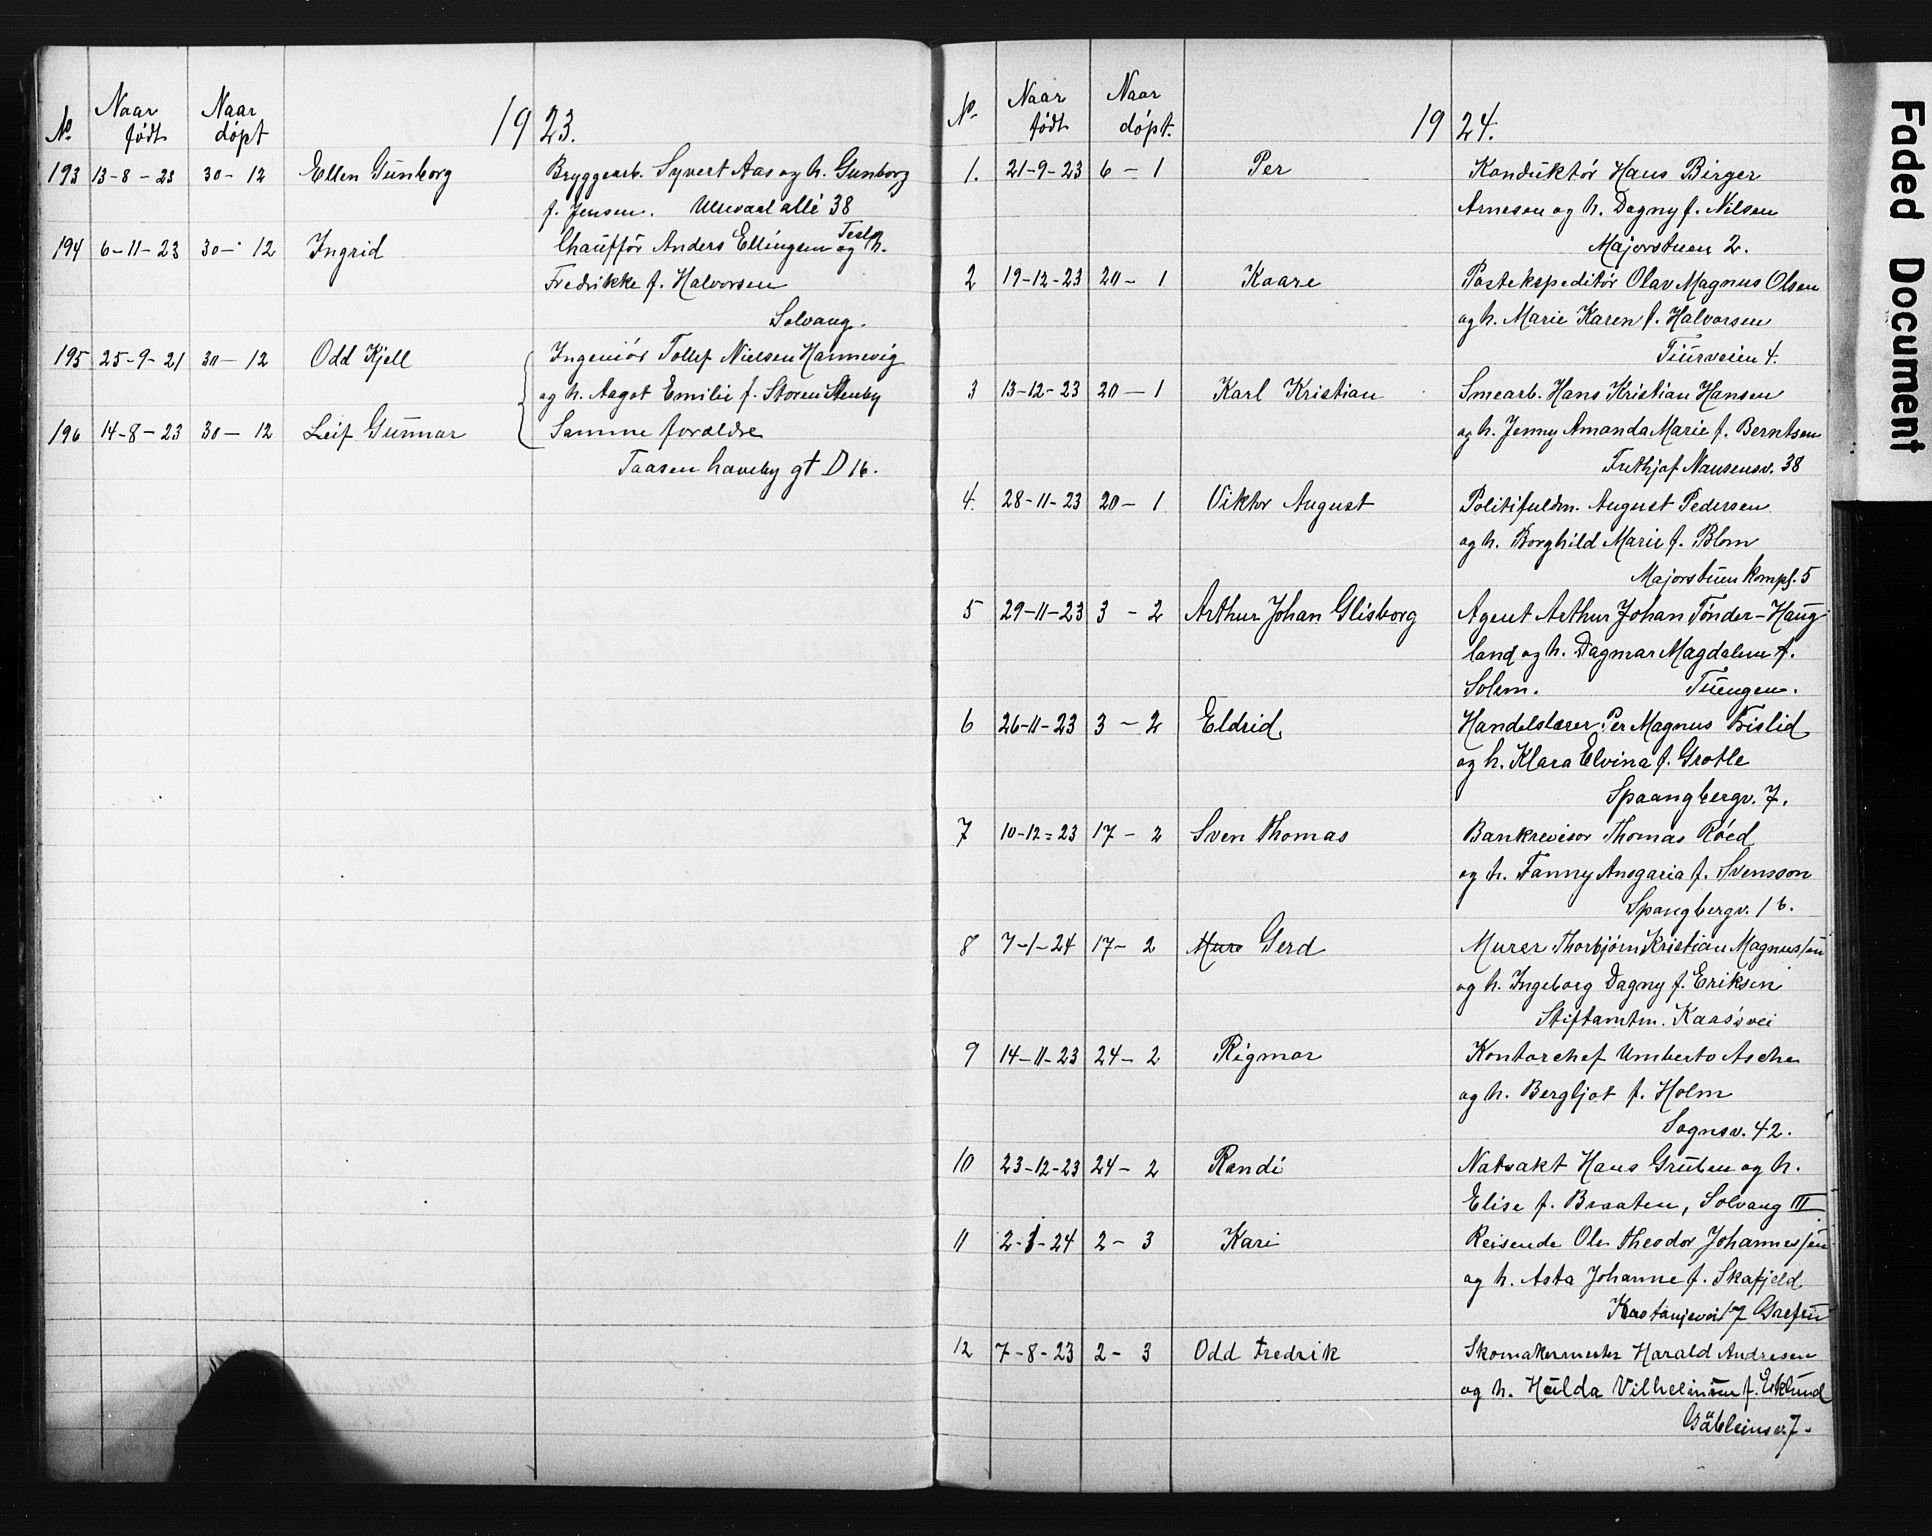 1923.
No. Naar født Naar døpt
193 13-8-23 30-12 Ellen Gunborg Bryggearb. Syvert Aas og h. Gunborg
f. Jensen. Ullevaal allé 38
194 6-11-23 30-12 Ingrid Chauffør Anders Ellingsen og h.
Fredrikke f. Halvorsen
Solvang.
195 25-9-21 30-12 Odd Kjell Ingeniør Tollef Nielsen Hannevig
og h. Aagot Emilie f. Storen Stenby
196 14-8-23 30-12 Leif Gunnar Samme forældre
Taasen haveby gt D 16.
1924.
No. Naar født Naar døpt.
1. 21-9-23 6-1 Per Konduktør Hans Birger
Arnesen og h. Dagny f. Nilsen
Majorstuen 2.
2 19-12-23 20-1 Kaare Postekspeditør Olav Magnus Olsen
og h. Marie Karen f. Halvorsen
Tiurveien 4.
3 13-12-23 20-1 Karl Kristian Smearb. Hans Kristian Hansen
og h. Jenny Amanda Marie f. Berntsen
Frithjof Nansensv. 38
4. 28-11-23 20-1 Viktor August Politifuldm. August Pedersen
og h. Borghild Marie f. Blom
Majorstuen kompl. 5
5 29-11-23 3-2 Arthur Johan Glisborg Agent Arthur Johan Tønder-Haug
land og h. Dagmar Magdalene f.
Solem. Tuengen.
6 26-11-23 3-2 Eldrid. Handelslærer Per Magnus Frislid
og h. Klara Elvina f. Grotle
Spaangbergv. 7.
7 10-12-23 17-2 Sven Thomas Bankrevisor Thomas Røed
og h. Fanny Ansgaria f. Svensson
Spangbergv. 16.
8 7-1-24 17-2 Mure Gerd Murer Thorbjørn Kristian Magnussen
og h. Ingeborg Dagny f. Eriksen
Stiftamtm. Kaas's vei
9 14-11-23 24-2 Rigmor Kontorchef Umberto Asche
og h. Bergljot f. Holm
Sognsv. 42.
10 23-12-23 24-2 Randi Natvakt Hans Gruben og h.
Elise f. Braaten, Solvang III
11 2-1-24 2-3 Kari Reisende Ole Theodor Johannessen
og h. Asta Johanne f. Skafjeld
Kastanjevei 17 Grefsen
12 7-8-23 2-3 Odd Fredrik Skomakermester Harald Andresen
og h. Hulda Vilhelmine f. Eklund
Faded Document